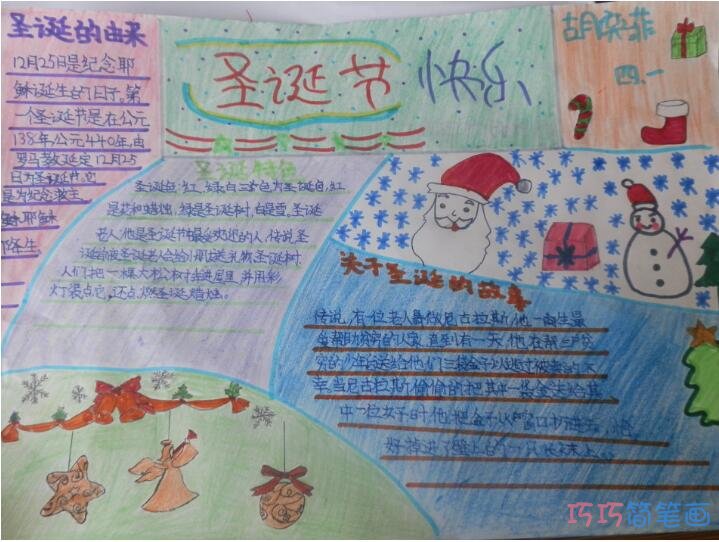 圣诞的由来
12月25日是纪念耶
稣诞生的日子。第
一个圣诞节是在公元
138年,公元440年,由
罗马教廷定12月25
日为圣诞节,它
是为纪念救主
稣耶稣
降生
圣诞节快乐
胡
菲
四、一
圣诞特色
圣诞色:红、绿、白三色为圣诞色,红
是花和蜡烛,绿是圣诞树,白是雪。圣诞
老人:他是圣诞节最受欢迎的人,传说圣
诞前夜圣诞老人会给小朋送礼物。圣诞树:
人们把一棵大松树弄进屋里,并用彩
灯装点它,还点燃圣诞蜡烛。
关于圣诞的故事
传说,有一位老人叫做尼古拉斯,他一生最
爱帮助贫穷的人家,直到有一天,他在帮三户贫
穷的少年
送给他们三袋金子以逃过被卖的不
幸,当尼古拉斯偷偷的把其中一袋金送给其
中一位女子时,他把金子从窗口扔进去,恰
好掉进了壁上的一只长袜上。
巧巧简笔画